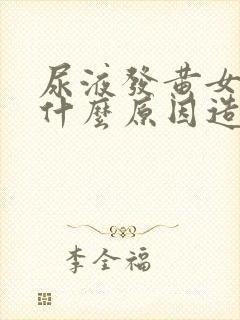 尿液發黃女
什麼原因造
李全福